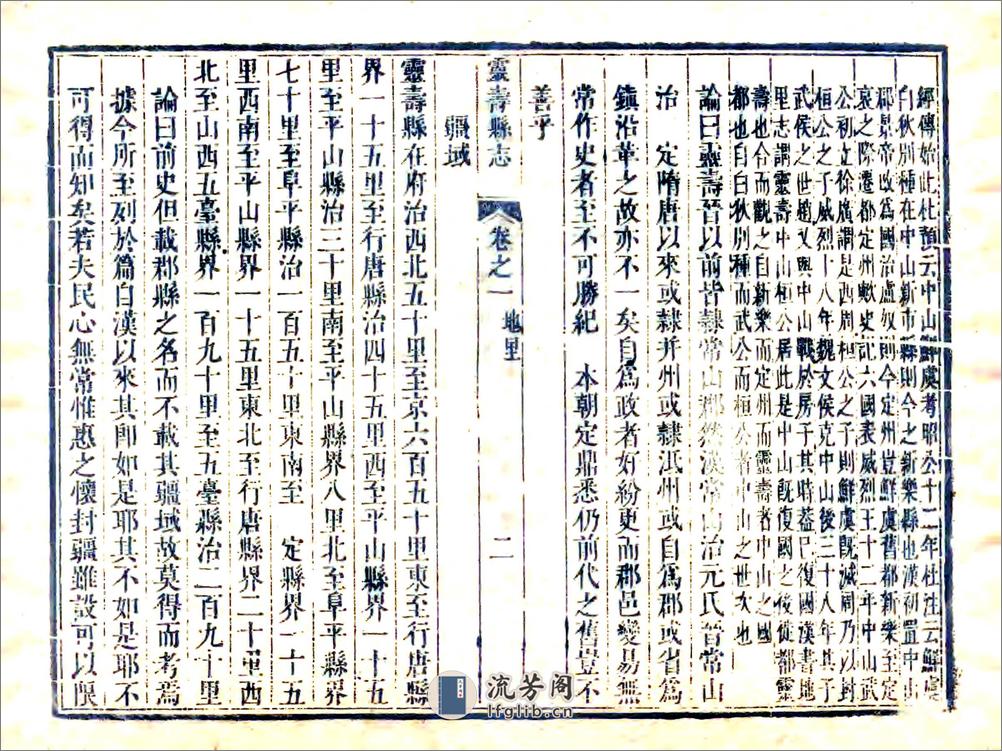 經傳始此杜預云中山鮮虞考昭公十二年杜注云鮮虞
白秋別種在中山新市縣則今之新樂縣也漢初置中山
郡景帝改為國治盧奴則今定州豈鮮虞舊都新樂至定
哀之際遷都定州歟史記六國表威烈王十二年中山武
公初立徐廣謂是西周桓公之子則鮮虞既滅周乃以封
桓公之子威烈十八年魏文侯克中山後三十八年其子
武侯之世趙又與中山戰於房子其時葢已復國漢書地
里志謂靈壽中山桓公居此是中山既復國之後從都靈
壽也合而觀之自新樂而定州而靈壽者中山之國
都也自白秋別種而武公而桓公者中山之世次也
論曰靈壽晉以前皆隸常山郡然漢常山治元氏晉常山
治　定隋唐以來或隸并州或隸泜州或自為郡或省為
鎮沿革之故亦不一矣自為政者好紛更而郡邑變易無
常作史者至不可勝紀　本朝定鼎悉仍前代之舊豈不
善乎
靈壽縣志　卷之一　地里　二
疆域
靈壽縣在府治西北五十里至京六百五十里東至行唐縣
界一十五里至行唐縣治四十五里西至平山縣界一十五
里至平山縣治三十里南至平山縣界八里北至阜平縣界
七十里至阜平縣治一百五十里東南至　定縣界二十五
里西南至平山縣界一十五里東北至行唐縣界二十里西
北至山西五臺縣界一百九十里至五臺縣治二百九十里
論曰前史但載郡縣之名而不載其疆域故莫得而考焉
據今所至列於篇自漢以來其即如是耶其不如是耶不
可得而知矣若夫民心無常惟惠之懷封疆雖設可以限
流芳阁
lfglib.cn